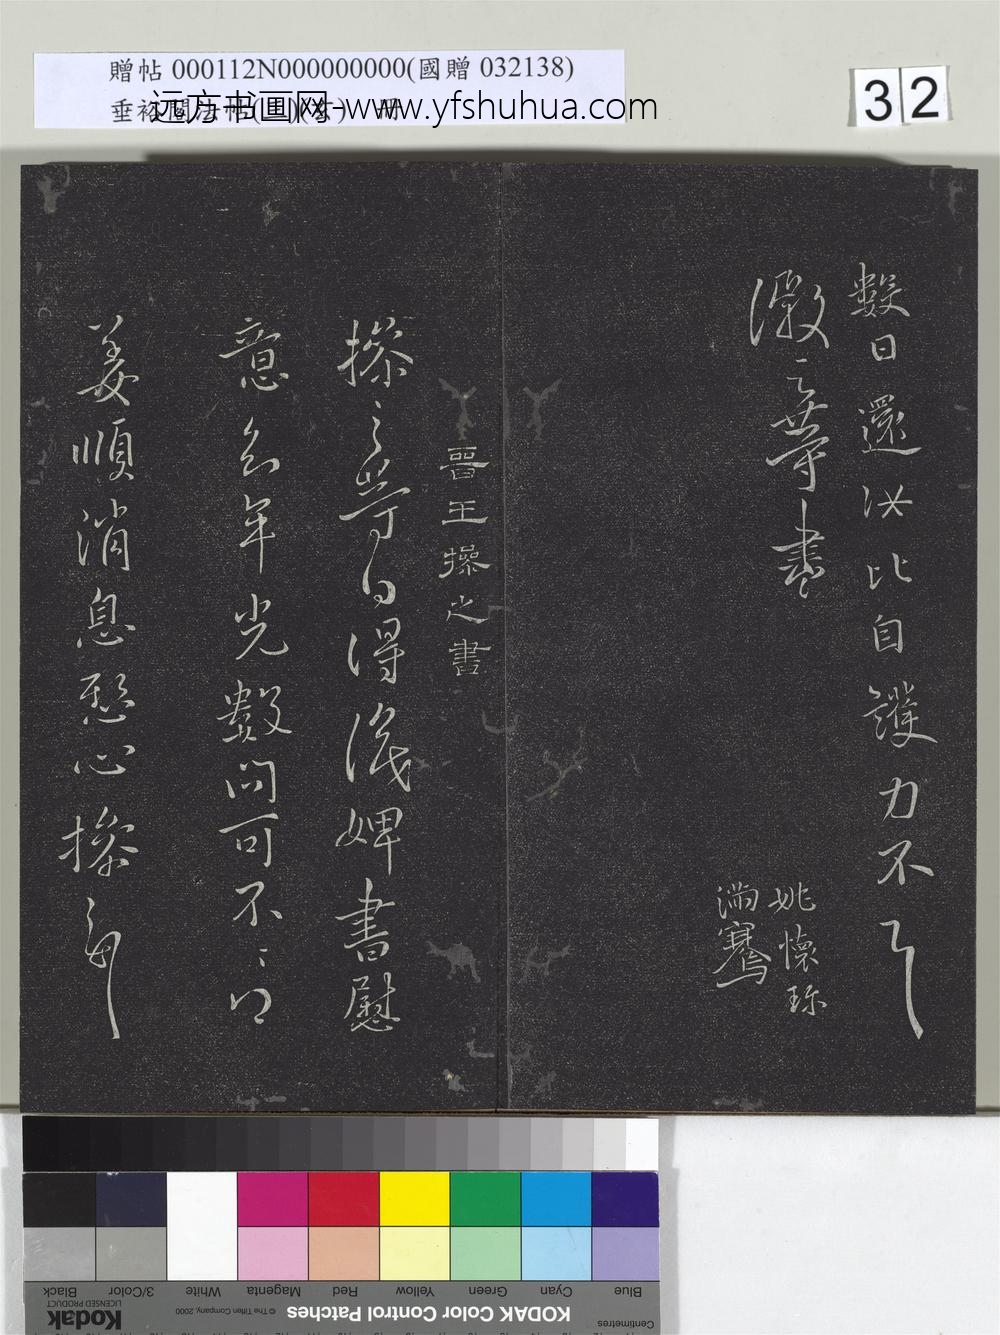 贈帖 000112N000000000(國贈 032138)
远方书画网-www.yfshuhua.com
32
數日還汝比自護力不
徽之等書
姚懷珍
滿騫
晉王操之書
操之等白得識婢書慰
意念年光數問可不
姜順消息懸心操之
KODAK Color Control Patches
© The Tiffen Company, 2000
Kodak
LICENSED PRODUCT
Blue
Cyan
Green
Yellow
Red
Magenta
White
3/Color
Black
Centimetres